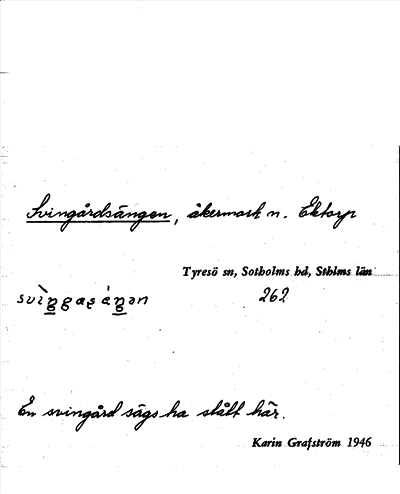 Svingårdsängen, åkermark n. Ektorp
Tyresö sn, Sotholms hd, Sthlms län
262
En svingård sägs ha stått här.
Karin Grafström 1946